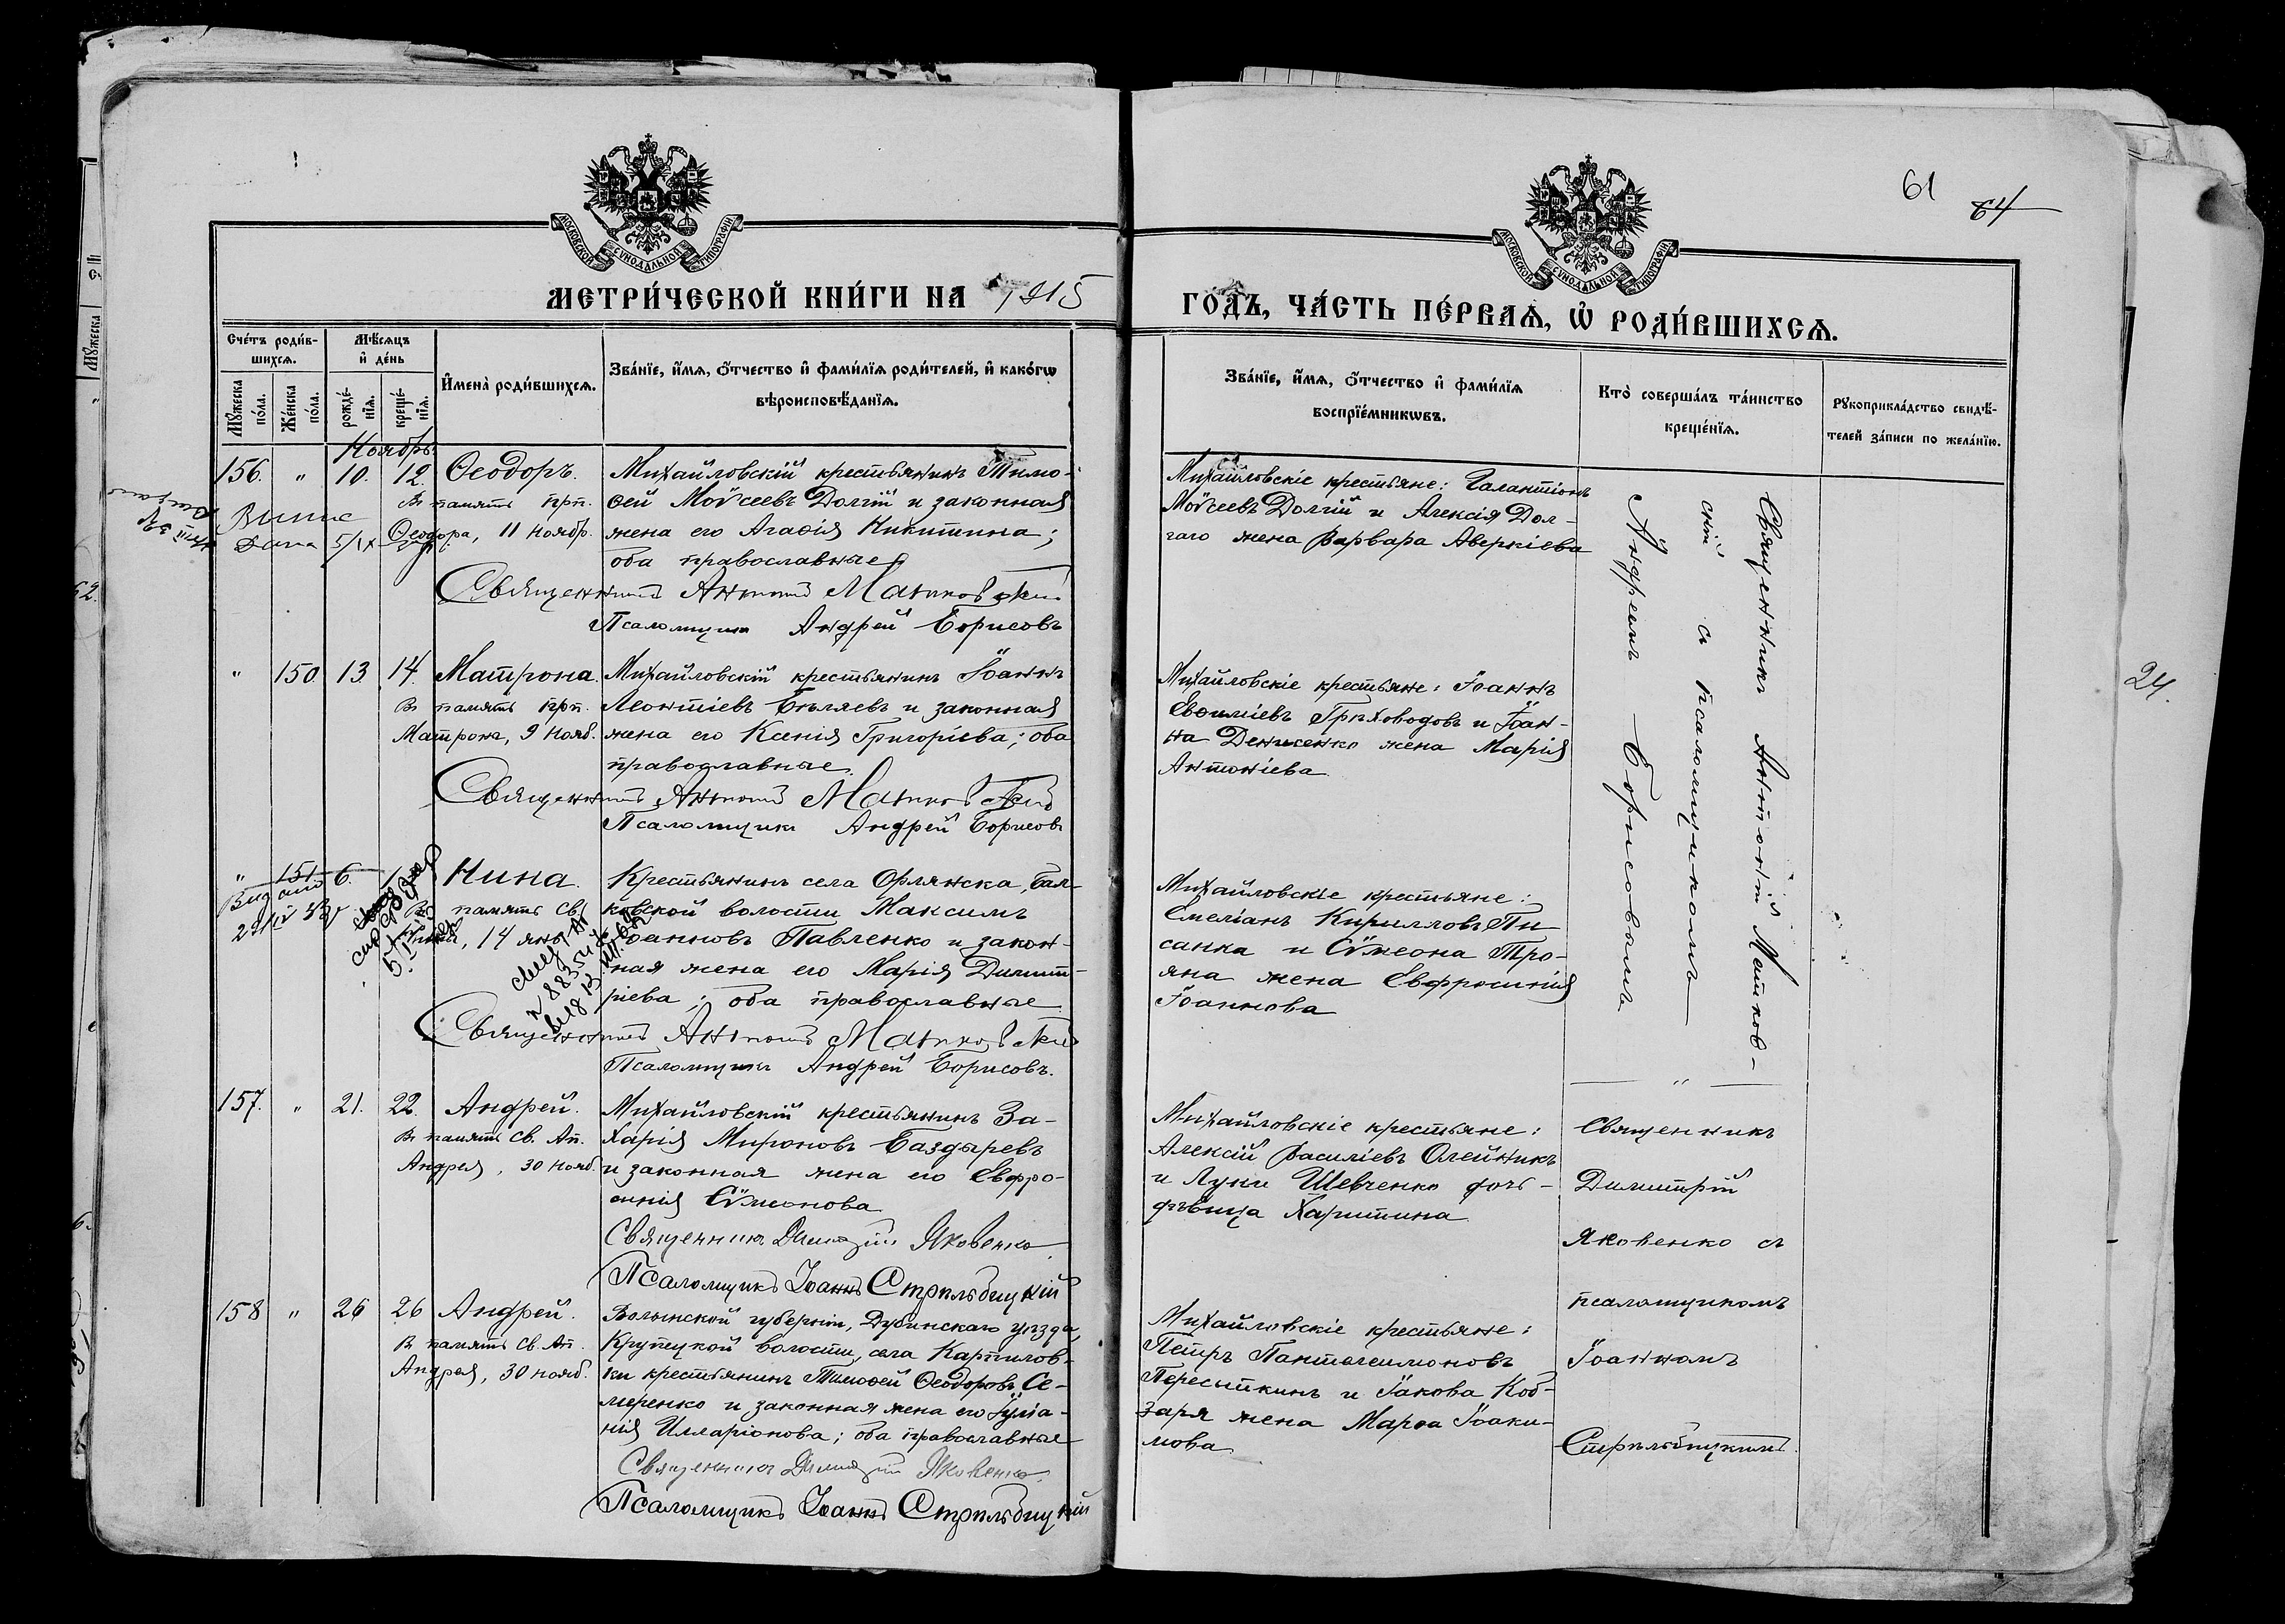 61
64
МОСКОВСКОЙ СУНОДАЛЬНОЙ ТИПОГРАФІИ
МОСКОВСКОЙ СУНОДАЛЬНОЙ ТИПОГРАФІИ
МЕТРИ́ЧЕСКОЙ КНИ́ГИ НА 1915
ГОДЪ, ЧА́СТЬ ПЕ́РВАѦ, Ѡ҆ РОДИ́ВШИХСѦ.
Сче́тъ роди́в-
шихсѧ.
Мѣ́сѧцъ
и҆ де́нь
Мꙋ́жеска по́ла.
Же́нска по́ла.
рожде́-
нїѧ.
креще́-
нїѧ.
И҆мена̀ роди́вшихсѧ.
Зва́нїе, и҆́мѧ, ѻ҆́тчество и҆ фами́лїѧ роди́телей, и҆ како́гѡ
вѣроисповѣ́данїѧ.
Зва́нїе, и҆́мѧ, ѻ҆́тчество и҆ фами́лїѧ
воспрїе́мникѡвъ.
Кто̀ соверша́лъ та́инство
креще́нїѧ.
Рꙋкоприкла́дство свидѣ́-
телей за́писи по жела́нїю.
Ноябрь.
156. " 10. 12. Ѳеодоръ.
Въ память прп.
Ѳеодора, 11 ноябр.
Михайловскій крестьянинъ Тимо-
ѳей Моѵсеевъ Долгій и законная
жена его Агаѳія Никитина;
оба православные
Священникъ Антоній Матковскій
Псаломщикъ Андрей Борисовъ
Михайловскіе крестьяне: Галактіонъ
Моѵсеевъ Долгій и Алексія Дол-
гаго жена Варвара Аверкіева
5/IX
" 150 13. 14. Матрона.
Въ память прп.
Матроны, 9 нояб.
Михайловскій крестьянинъ Іоаннъ
Леонтіевъ Бѣляевъ и законная
жена его Ксенія Григоріева; оба
православные.
Священникъ Антоній Матковскій
Псаломщикъ Андрей Борисовъ
Михайловскіе крестьяне: Іоаннъ
Евѳиміевъ Грѣховодовъ и Іоан-
на Денисенко жена Марія
Антоніева
" 151 6. Нина.
память св.
Нины, 14 янв.
Крестьянинъ села Орлянска, Бал-
ковской волости Максимъ
Іоанновъ Павленко и закон-
ная жена его Марія Димит-
ріева; оба православные
Священникъ Антоній Матковскій
Псаломщикъ Андрей Борисовъ.
Михайловскіе крестьяне:
Емеліанъ Кирилловъ Пи-
санка и Сѵмеона Тро-
яна жена Евфросинія
Іоаннова
Священникъ Антоній Матков-
скій съ псаломщикомъ
Андреемъ Борисовымъ
157. " 21. 22. Андрей.
Въ память св. Ап.
Андрея, 30 нояб.
Михайловскій крестьянинъ За-
харія Мироновъ Баздыревъ
и законная жена его Евфро-
синія Сѵмеонова
Священникъ Димитрій Яковенко
Псаломщикъ Іоаннъ Стрѣльбицкій
Михайловскіе крестьяне:
Алексій Василіевъ Олейникъ
и Луки Шевченко дочь-
дѣвица Харитина
Священникъ
Димитрій
Яковенко съ
псаломщикомъ
Іоанномъ
Стрѣльбицкимъ.
158 " 26 26 Андрей.
Въ память св. Ап.
Андрея, 30 нояб.
Волынской губерніи, Дубинскаго уѣзда,
Крупецкой волости, села Карпилов-
ки крестьянинъ Тимоѳей Ѳеодоровъ Се-
меренко и законная жена его Іуліа-
нія Илларіонова; оба православные
Священникъ Димитрій Яковенко.
Псаломщикъ Іоаннъ Стрѣльбицкій
Михайловскіе крестьяне:
Петръ Пантелеимоновъ
Пересыпкинъ и Іакова Коб-
заря жена Марѳа Іоаки-
мова
24.